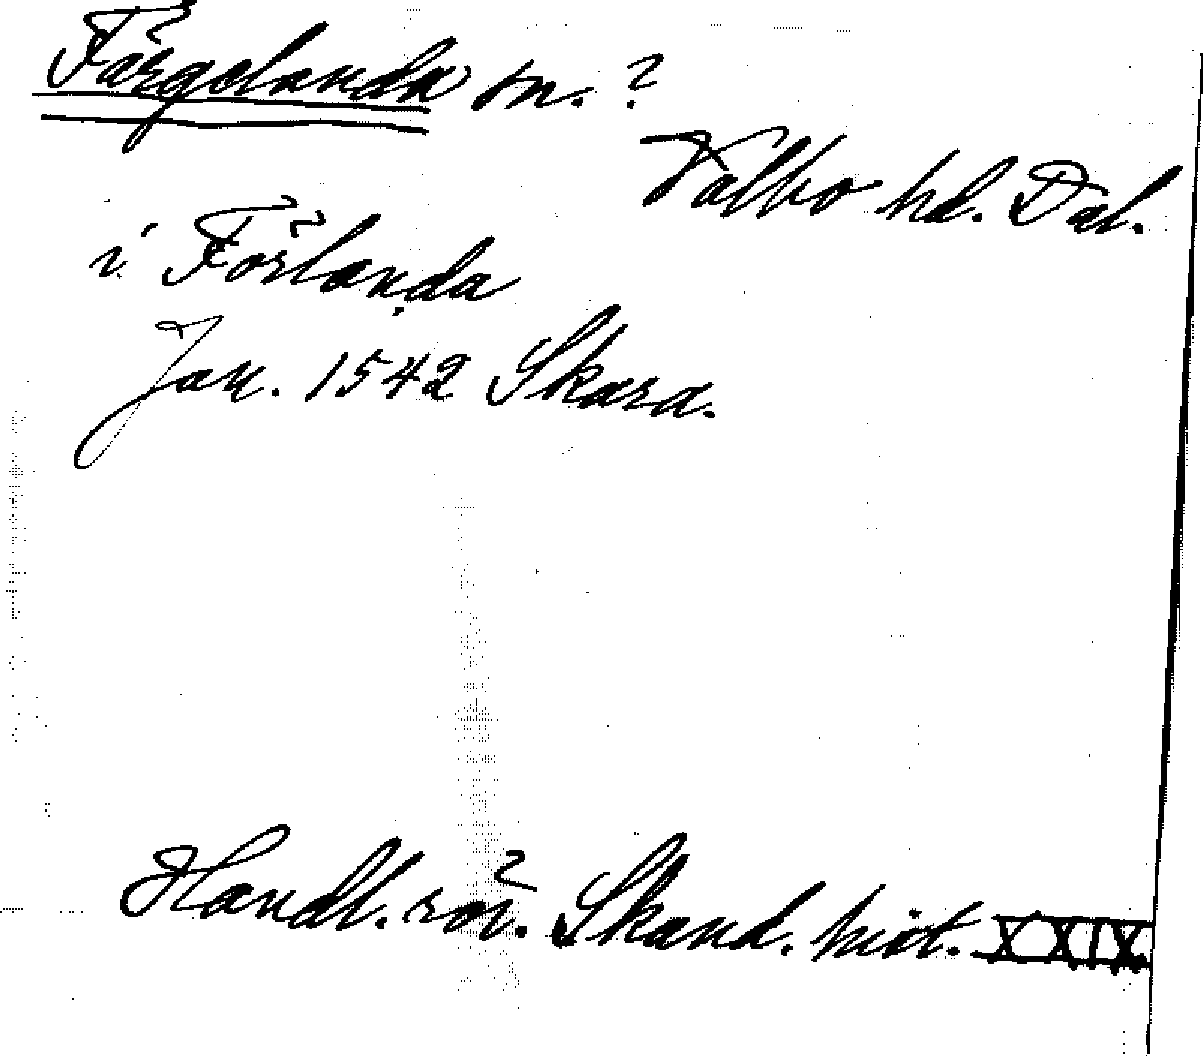 Färgelanda sn. ?
Valbo hd. Dal.
i Förlanda
Jan. 1542 Skara.
Handl. rör. Skand. hist. XXIX.